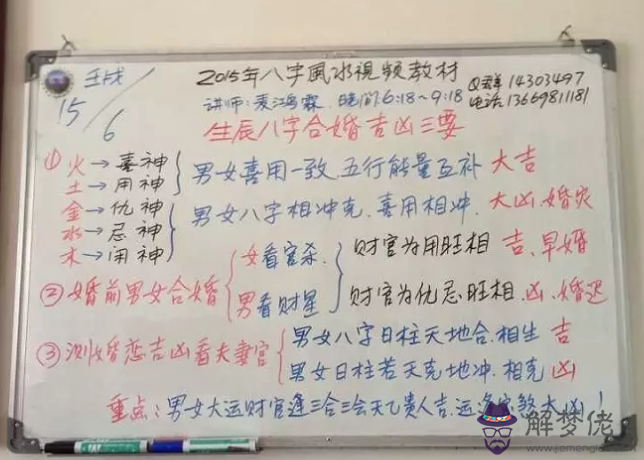 2015年八字風水視频教材
Q群14303497
讲师:麦鸿霖 晚间:6:18~9:18
电话:13669811181
壬戌
15/6
生辰八字合婚吉凶三要
① 火→喜神
土→用神
男女喜用一致.五行能量互补 大吉
金→仇神
水→忌神
木→闲神
男女八字相冲克.喜用相冲. 大凶.婚灾
②婚前男女合婚
女看官杀.
男看财星
财官为用旺相 吉、早婚
财官为仇忌旺相.凶.婚迟
③测婚恋吉凶看夫妻宫
男女八字日柱天地合.相生 吉
男女日柱若天克地冲.相克 凶
重点:男女大运财官逢三合三会天乙贵人吉.运逢煞大凶!
解梦佬